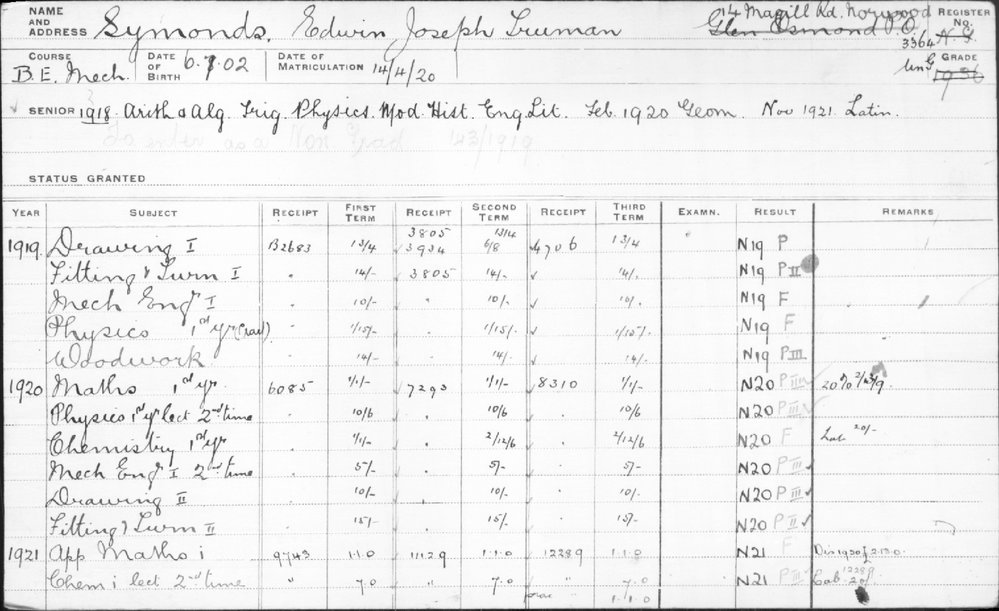 NAME AND ADDRESS Symonds, Edwin Joseph Truman 14 Magill Rd. Norwood REGISTER No.
Glen Osmond P.O. 3364 A.S.
COURSE B.E. Mech. DATE OF BIRTH 6.7.02 DATE OF MATRICULATION 14/4/20 GRADE
1936
SENIOR 1918. Arith & Alg. Trig. Physics. Mod. Hist. Eng. Lit. Feb. 1920 Geom. Nov 1921. Latin.
To enter as a Non Grad 143/1919
STATUS GRANTED
YEAR SUBJECT RECEIPT FIRST TERM RECEIPT SECOND TERM RECEIPT THIRD TERM EXAMN. RESULT REMARKS
3805 13/4
1919 Drawing I B2683 13/4 3934 6/8 4706 13/4 N19 P
Fitting & Turn I " 14/- 3805 14/- 14/- N19 P II
Mech Eng I " 10/- " 10/- 10/- N19 F
Physics 1st yr (prac) " 1/15/- 1/15/- 1/15/- N19 F
Woodwork 14/- 14/- 14/- N19 P III
1920 Maths 1st yr. 6085 1/1/- 7293 1/1/- 8310 1/1/- N20 P III
Physics 1st yr lect 2nd time 10/6 10/6 10/6 N20 P III
Chemistry 1st yr 1/1/- 2/12/6 2/12/6 N20 F Lab 20/-
Mech Eng I 2nd time 5/- 5/- 5/- N20 P III
Drawing II 10/- 10/- 10/- N20 P III
Fitting & Turn II 15/- 15/- 15/- N20 P II
1921 App Maths i 9743 1.1.0 11129 1.1.0 12289 1.1.0 N21 F Dis 1920 £2.13.0.
Chem i lect 2nd time " 7.0 " 7.0 " 7.0 N21 P III Lab 12289 20/
prac 1.1.0